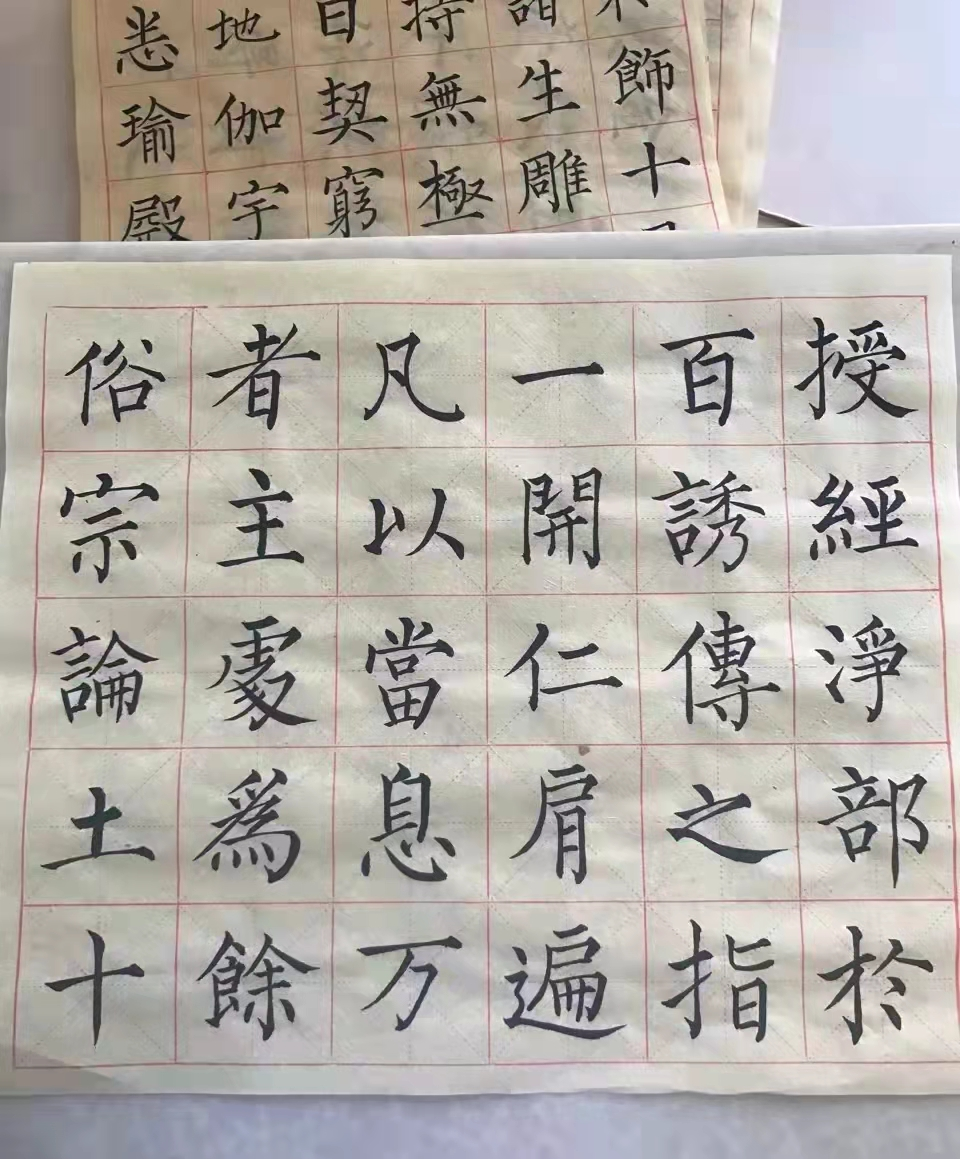 悉地日持諸
瑜伽契無生飾
殿宇窮極雕十
俗者凡一百授
宗主以開誘經
論處當仁傳淨
土爲息肩之部
十餘万遍指於